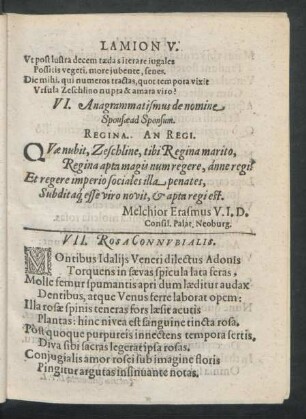 LAMION V.
Vt post lustra decem tæda s iterare iugales
Possitis vegeti, more jubente, senes.
Dic mihi, qui numeros tractas, quot tempora vixit
Vrsula Zeschlino nupta & amara viro?
VI. Anagrammatismus de nomine
Sponsæ ad Sponsum.
REGINA. AN REGI.
QVæ nubit, Zeschline, tibi Regina marito,
Regina apta magis num regere, ánne regi?
Et regere imperio sociales illa penates,
Subditaq́ esse viro novit, & apta regi est.
Melchior Erasmus V. I. D.
Consil. Palat. Neoburg.
VII. ROSA CONNVBIALIS.
MOntibus Idalijs Veneri dilectus Adonis
Torquens in sævas spicula lata feras,
Molle femur spumantis apri dum læditur audax
Dentibus, atque Venus ferre laborat opem:
Illa rosæ spinis teneras fors læsit acutis
Plantas: hinc nivea est sanguine tincta rosa.
Post quoque purpureis innectens tempora sertis,
Diva sibi sacras legerat ipsa rosas.
Conjugialis amor rosei sub imagine floris
Pingitur argutas insinuante notas.